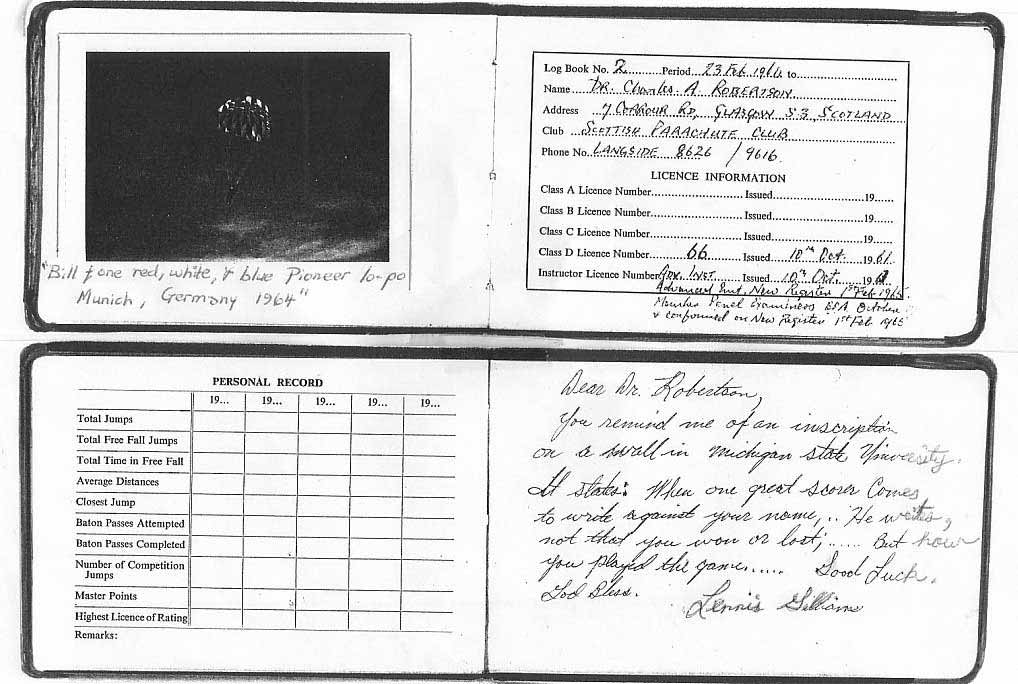 "Bill & one red, white, & blue Pioneer lo-po
Munich, Germany 1964"
Log Book No. 2 Period 23 Feb 1966 to
Name DR. Charles A ROBERTSON
Address 7 CORROUR RD, GLASGOW S3, SCOTLAND
Club SCOTTISH PARACHUTE CLUB
Phone No. LANGSIDE 8626 / 9616
LICENCE INFORMATION
Class A Licence Number Issued 19
Class B Licence Number Issued 19
Class C Licence Number Issued 19
Class D Licence Number 66 Issued 10th Oct. 1961
Instructor Licence Number Adv. Inst. Issued 10th Oct. 196
Advanced Inst. New Register 1st Feb 1965
Member Panel Examiners October
& confirmed on New Register 1st Feb 1965
PERSONAL RECORD
19... 19... 19... 19... 19...
Total Jumps
Total Free Fall Jumps
Total Time in Free Fall
Average Distances
Closest Jump
Baton Passes Attempted
Baton Passes Completed
Number of Competition
Jumps
Master Points
Highest Licence of Rating
Remarks:
Dear Dr. Robertson,
You remind me of an inscription
on a wall in Michigan State University.
It states: When one great scorer Comes
to write against your name,.. He writes,
not that you won or lost;..... But how
you played the game..... Good Luck.
God Bless.
Lennis